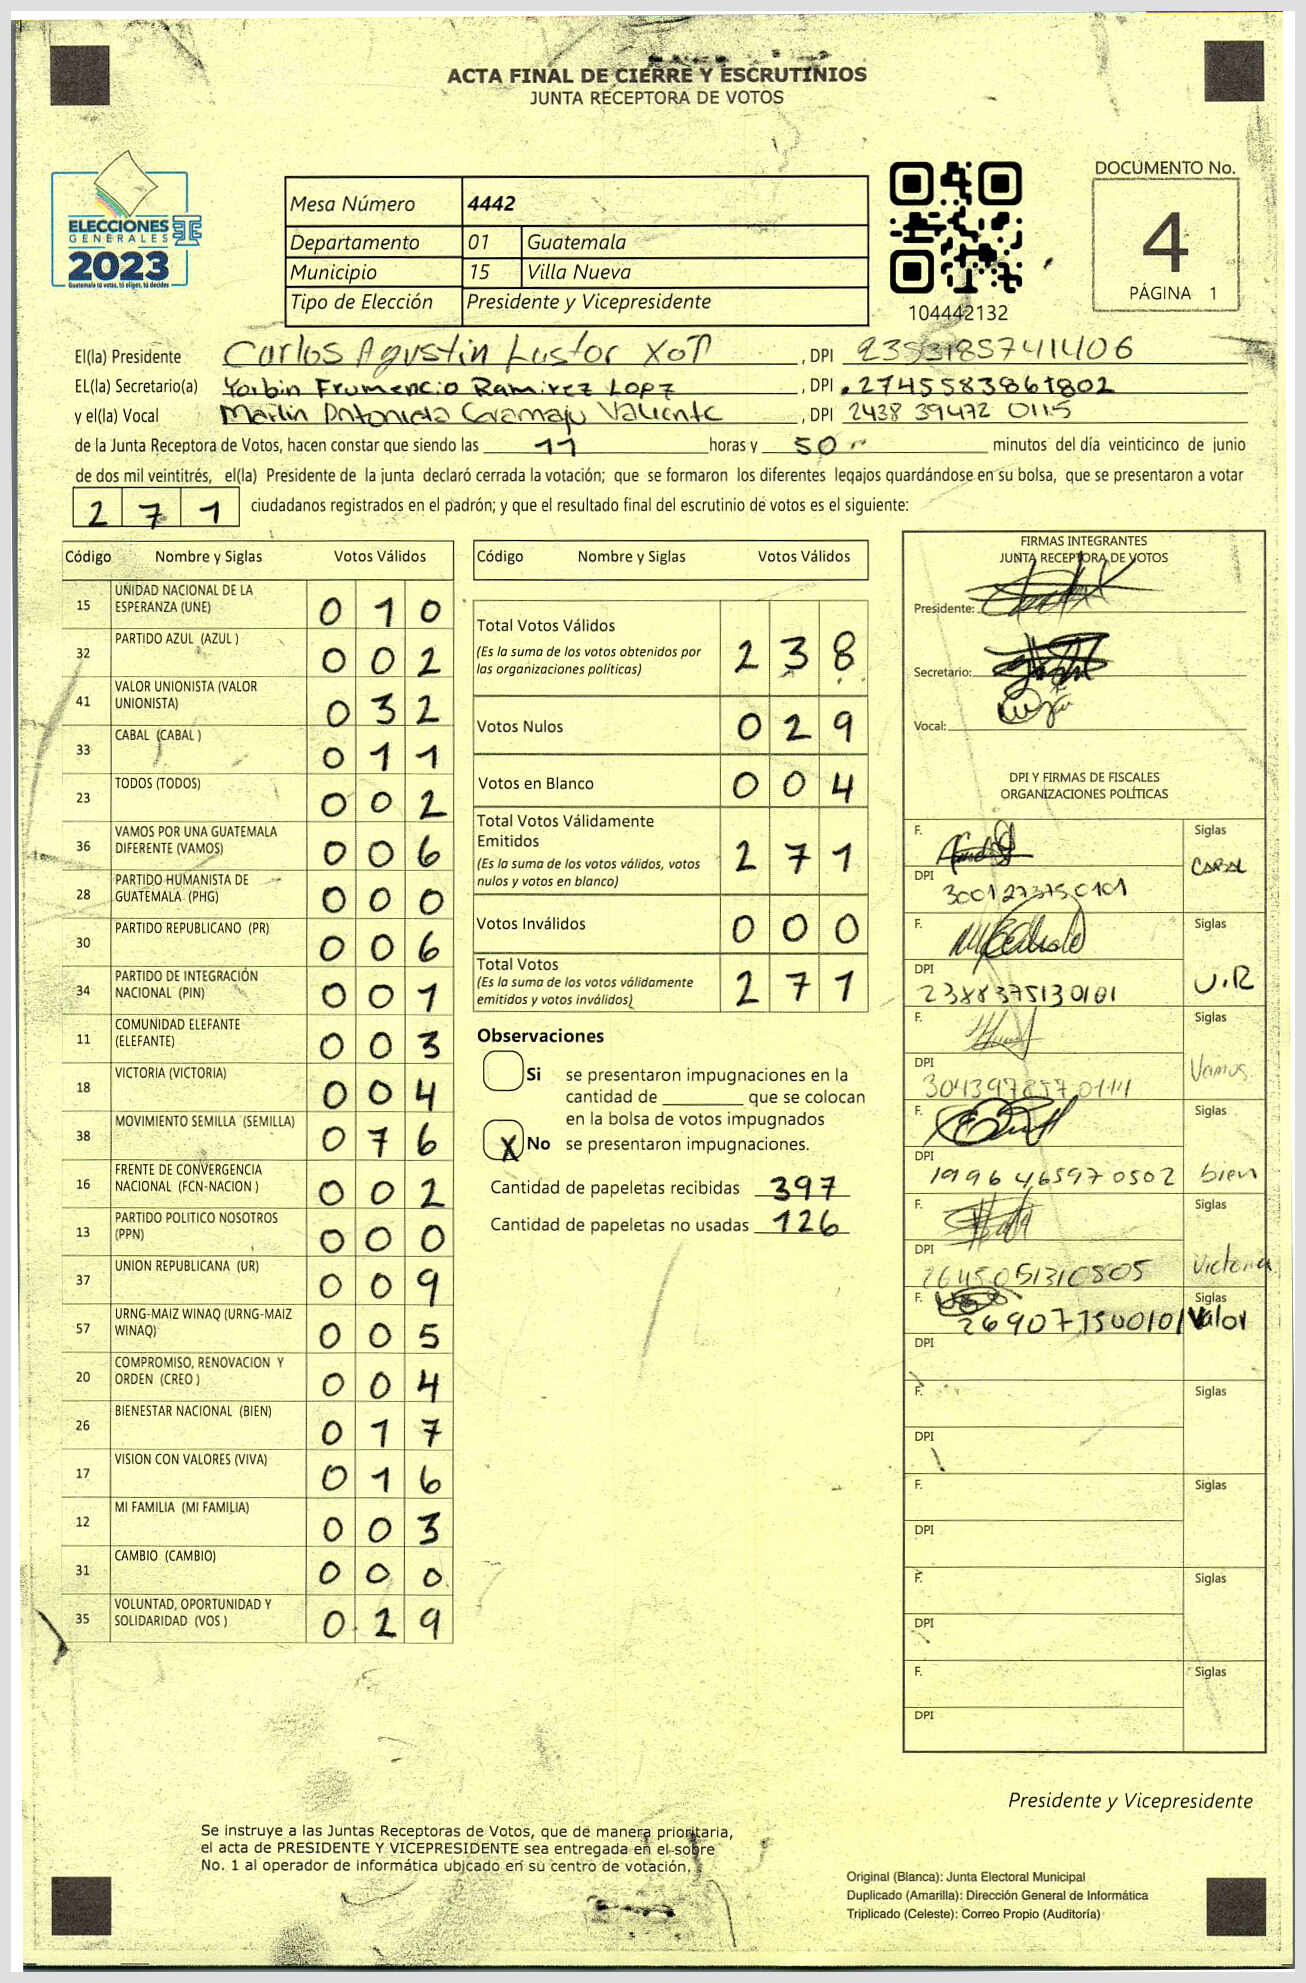 ACTA FINAL DE CIERRE Y ESCRUTINIOS
JUNTA RECEPTORA DE VOTOS
ELECCIONES
GENERALES
2023
Guatemala tú votas, tú eliges, tú decides
Mesa Número 4442
Departamento 01 Guatemala
Municipio 15 Villa Nueva
Tipo de Elección Presidente y Vicepresidente
104442132
DOCUMENTO No.
4
PÁGINA 1
El(la) Presidente Carlos Agustin XoT , DPI
EL(la) Secretario(a) Yorbin Frumencio Ramirez Lopz , DPI 2745583861802
y el(la) Vocal Marlin Antonieta Caramaju Valiente , DPI 2438 39472 0115
de la Junta Receptora de Votos, hacen constar que siendo las 11 horas y 50 minutos del día veinticinco de junio
de dos mil veintitrés, el(la) Presidente de la junta declaró cerrada la votación; que se formaron los diferentes legajos guardándose en su bolsa, que se presentaron a votar
2 7 1 ciudadanos registrados en el padrón; y que el resultado final del escrutinio de votos es el siguiente:
Código Nombre y Siglas Votos Válidos
15 UNIDAD NACIONAL DE LA ESPERANZA (UNE) 0 1 0
32 PARTIDO AZUL (AZUL ) 0 0 2
41 VALOR UNIONISTA (VALOR UNIONISTA) 0 3 2
33 CABAL (CABAL ) 0 1 1
23 TODOS (TODOS) 0 0 2
36 VAMOS POR UNA GUATEMALA DIFERENTE (VAMOS) 0 0 6
28 PARTIDO HUMANISTA DE GUATEMALA (PHG) 0 0 0
30 PARTIDO REPUBLICANO (PR) 0 0 6
34 PARTIDO DE INTEGRACIÓN NACIONAL (PIN) 0 0 1
11 COMUNIDAD ELEFANTE (ELEFANTE) 0 0 3
18 VICTORIA (VICTORIA) 0 0 4
38 MOVIMIENTO SEMILLA (SEMILLA) 0 7 6
16 FRENTE DE CONVERGENCIA NACIONAL (FCN-NACION ) 0 0 2
13 PARTIDO POLITICO NOSOTROS (PPN) 0 0 0
37 UNION REPUBLICANA (UR) 0 0 9
57 URNG-MAIZ WINAQ (URNG-MAIZ WINAQ) 0 0 5
20 COMPROMISO, RENOVACION Y ORDEN (CREO ) 0 0 4
26 BIENESTAR NACIONAL (BIEN) 0 1 7
17 VISION CON VALORES (VIVA) 0 1 6
12 MI FAMILIA (MI FAMILIA) 0 0 3
31 CAMBIO (CAMBIO) 0 0 0
35 VOLUNTAD, OPORTUNIDAD Y SOLIDARIDAD (VOS ) 0 2 9
Código Nombre y Siglas Votos Válidos
Total Votos Válidos 2 3 8
(Es la suma de los votos obtenidos por
las organizaciones políticas)
Votos Nulos 0 2 9
Votos en Blanco 0 0 4
Total Votos Válidamente
Emitidos 2 7 1
(Es la suma de los votos válidos, votos
nulos y votos en blanco)
Votos Inválidos 0 0 0
Total Votos 2 7 1
(Es la suma de los votos válidamente
emitidos y votos inválidos)
Observaciones
Si se presentaron impugnaciones en la
cantidad de ________ que se colocan
en la bolsa de votos impugnados
X No se presentaron impugnaciones.
Cantidad de papeletas recibidas 397
Cantidad de papeletas no usadas 126
FIRMAS INTEGRANTES
JUNTA RECEPTORA DE VOTOS
Presidente:
Secretario:
Vocal:
DPI Y FIRMAS DE FISCALES
ORGANIZACIONES POLÍTICAS
F. Siglas
DPI 3001273750101 CABAL
F. Siglas
DPI 2388375130101 U.R
F. Siglas
DPI Vamos
F. Siglas
DPI 1996465970502 bien
F. Siglas
DPI 2645051310805 Victoria
F. Siglas
2690771500101 Valor
DPI
F. Siglas
DPI
F. Siglas
DPI
F. Siglas
DPI
F. Siglas
DPI
Presidente y Vicepresidente
Se instruye a las Juntas Receptoras de Votos, que de manera prioritaria,
el acta de PRESIDENTE Y VICEPRESIDENTE sea entregada en el sobre
No. 1 al operador de informática ubicado en su centro de votación.
Original (Blanca): Junta Electoral Municipal
Duplicado (Amarilla): Dirección General de Informática
Triplicado (Celeste): Correo Propio (Auditoría)